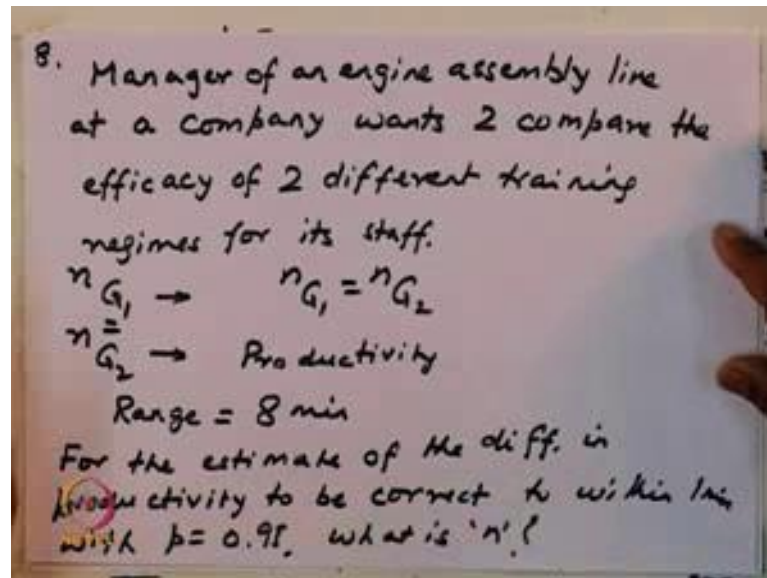 8. Manager of an engine assembly line
at a company wants 2 compare the
efficacy of 2 different training
regimes for its staff.
nG₁ → nG₁ = nG₂
=
nG₂ → Productivity
Range = 8 min
For the estimate of the diff. in
productivity to be correct to within 1 min
with p = 0.95. what is 'n'?